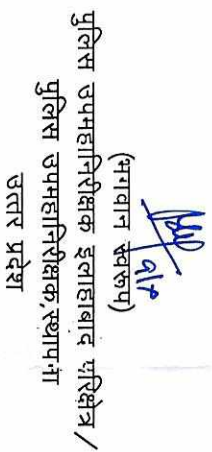 (भगवान स्वरूप)
पुलिस उपमहानिरीक्षक इलाहाबाद परिक्षेत्र/
पुलिस उपमहानिरीक्षक,स्थापना
उत्तर प्रदेश